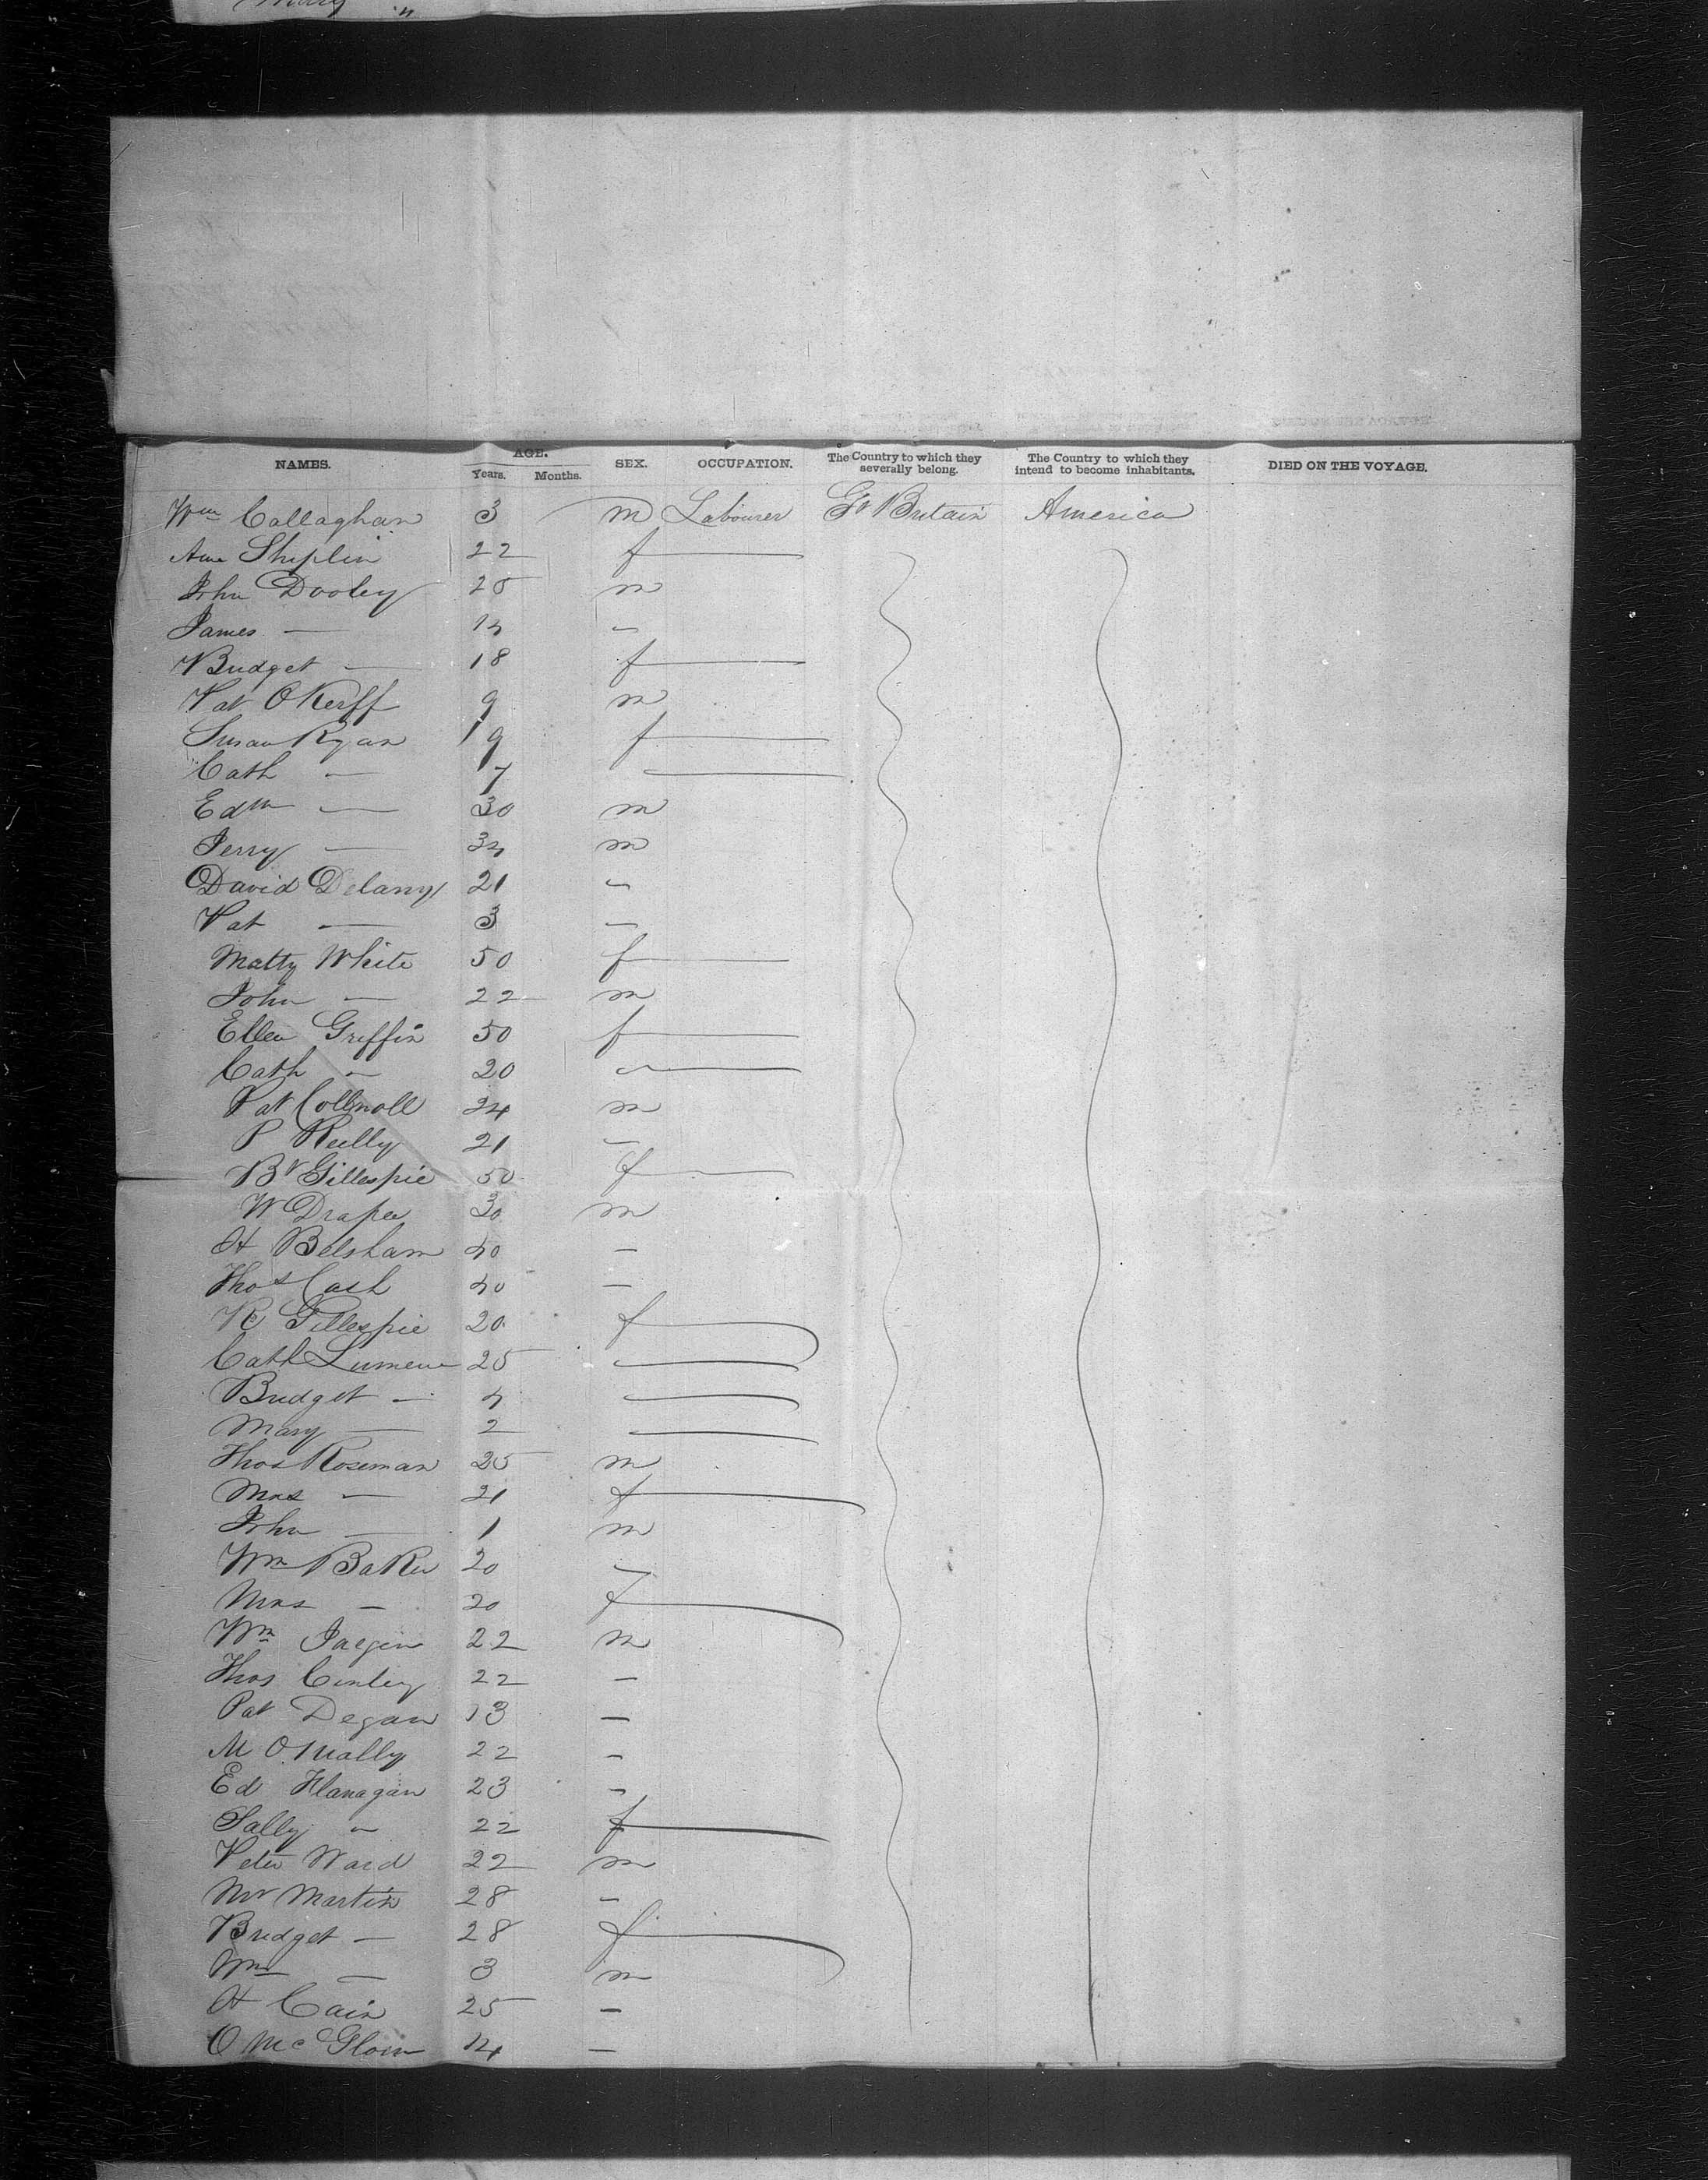 Mary "
NAMES. AGE. Years. Months. SEX. OCCUPATION. The Country to which they severally belong. The Country to which they intend to become inhabitants. DIED ON THE VOYAGE.
Wm Callaghan 3 m Labourer Gt Britain America
Ann Sheplin 22 f
John Dooley 25 m
James — 14 —
Bridget — 18 f
Pat OKeff 9 m
Susan Ryan 19 f
Cath — 7
Edm — 30 m
Jerry — 34 m
David Delany 21 —
Pat — 3 —
Matty White 50 f
John — 22 m
Ellen Griffin 50 f
Cath — 20 —
Pat 24 m
P Reilly 21 —
Bt Gillespie 50 f
W Draper 30 m
H Belsham 40 —
Thos Cash 40 —
K Gillespie 20 f
Cath 25 —
Bridget — 4 —
Mary — 2 —
Thos Roseman 25 m
Mrs — 21 f
John — 1 m
Wm Baker 20 —
Mrs — 20 f
Wm 22 m
Thos 22 —
Pat Degan 13 —
M O.Mally 22 —
Ed Flanagan 23 —
Sally " 22 f
Peter Ward 22 m
Mr Martin 28 —
Bridget — 28 f
Wm — 3 m
H Cain 25 —
O McGloin 14 —